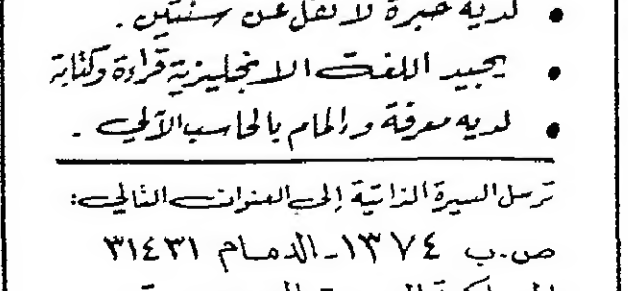 • لديه خبرة لا تقل عن سنتين .
• يجيد اللغة الانجليزية قراءة وكتابة
• لديه معرفة والمام بالحاسب الآلي .
ترسل السيرة الذاتية إلى العنوان التالي:
ص.ب ١٣٧٤ - الدمام ٣١٤٣١
المملكة العربية السعودية